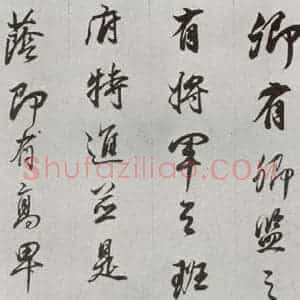 卿有卿監之
有將軍之班
府特進並是
蔭即有高卑
Shufaziliao.com